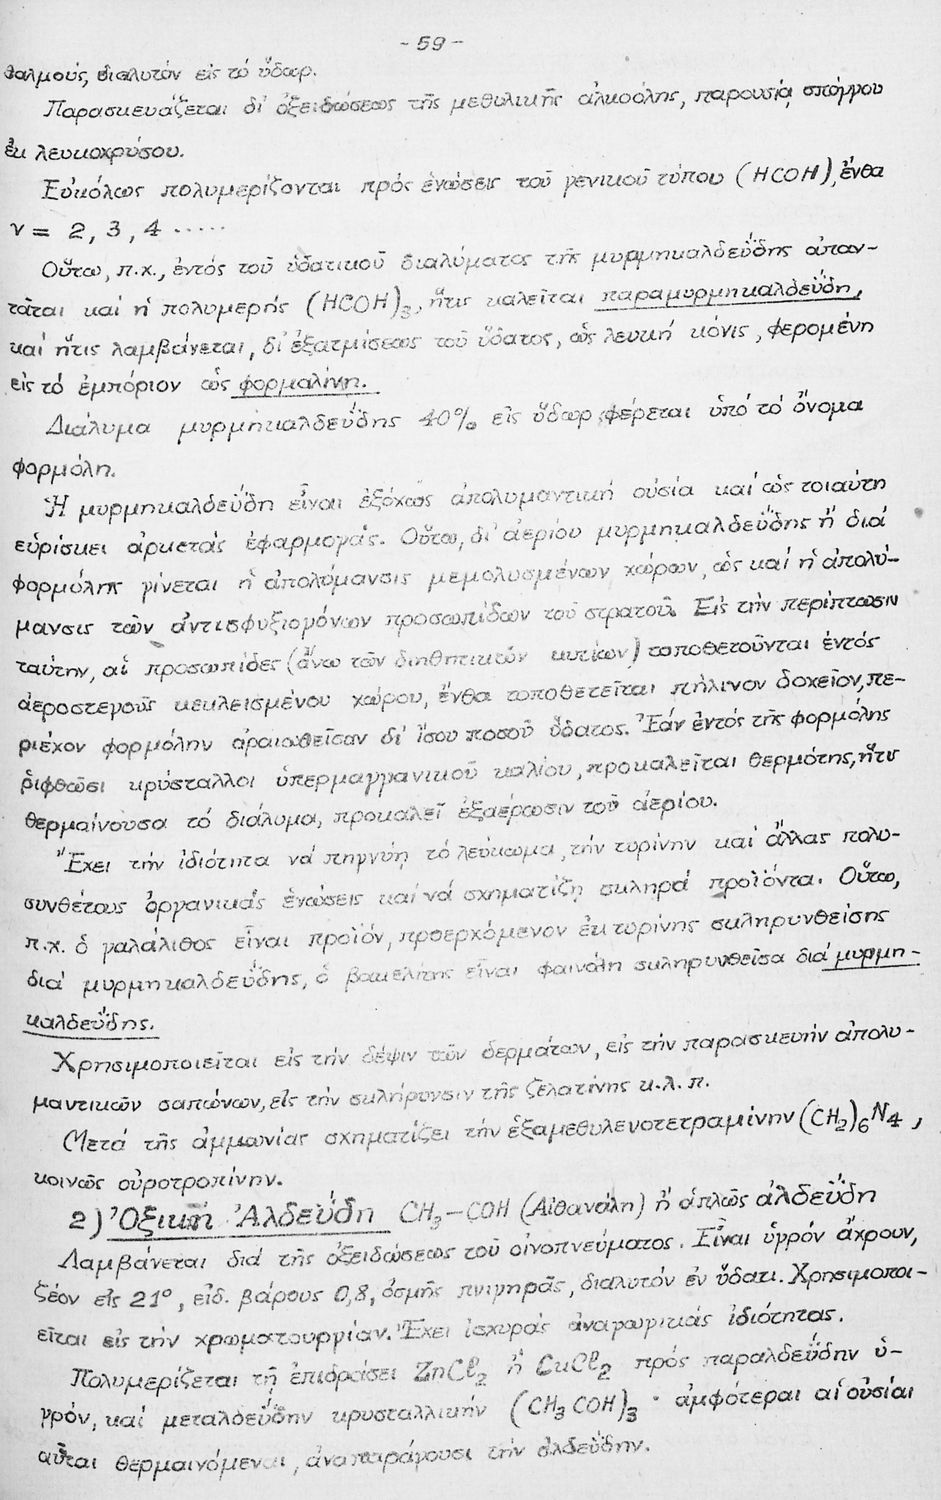 - 59 -
θαλμούς, διαλυτόν εἰς τό ὕδωρ.
Παρασκευάζεται δι' ὀξειδώσεως τῆς μεθυλικῆς ἀλκοόλης, παρουσίᾳ σπόγγου
ἐκ λευκοχρύσου.
Εὐκόλως πολυμερίζονται πρός ἑνώσεις τοῦ γενικοῦ τύπου (HCOH), ἔνθα
ν = 2, 3, 4 .....
Οὕτω, π.χ., ἐντός τοῦ ὑδατικοῦ διαλύματος τῆς μυρμηκαλδεΰδης ἀπαν-
τᾶται καί ἡ πολυμερής (HCOH)3, ἥτις καλεῖται παραμυρμηκαλδεΰδη,
καί ἥτις λαμβάνεται, δι' ἐξατμίσεως τοῦ ὕδατος, ὡς λευκή κόνις, φερομένη
εἰς τό ἐμπόριον ὡς φορμαλίνη.
Διάλυμα μυρμηκαλδεΰδης 40% εἰς ὕδωρ φέρεται ὑπό τό ὄνομα
φορμόλη.
Ἡ μυρμηκαλδεΰδη εἶναι ἐξόχως ἀπολυμαντική οὐσία καί ὡς τοιαύτη
εὑρίσκει ἀρκετάς ἐφαρμογάς. Οὕτω, δι' ἀερίου μυρμηκαλδεΰδης ἤ διά
φορμόλης γίνεται ἡ ἀπολύμανσις μεμολυσμένων χώρων, ὡς καί ἡ ἀπολύ-
μανσις τῶν ἀντισφυξιογόνων προσωπίδων τοῦ στρατοῦ. Εἰς τήν περίπτωσιν
ταύτην, αἱ προσωπίδες (ἄνω τῶν διηθητικῶν κυτίων) τοποθετοῦνται ἐντός
ἀεροστεγοῦς κεκλεισμένου χώρου, ἔνθα τοποθετεῖται πήλινον δοχεῖον, πε-
ριέχον φορμόλην ἀραιωθεῖσαν δι' ἴσου ποσοῦ ὕδατος. Ἐάν ἐντός τῆς φορμόλης
ῥιφθῶσι κρύσταλλοι ὑπερμαγγανικοῦ καλίου, προκαλεῖται θερμότης, ἥτις
θερμαίνουσα τό διάλυμα, προκαλεῖ ἐξαέρωσιν τοῦ ἀερίου.
Ἔχει τήν ἰδιότητα νά πηγνύῃ τό λεύκωμα, τήν τυρίνην καί ἄλλας πολυ-
συνθέτους ὀργανικάς ἑνώσεις καί νά σχηματίζῃ σκληρά προϊόντα. Οὕτω,
π.χ. ὁ γαλάλιθος εἶναι προϊόν, προερχόμενον ἐκ τυρίνης σκληρυνθείσης
διά μυρμηκαλδεΰδης, ὁ βακελίτης εἶναι φαινόλη σκληρυνθεῖσα διά μυρμη-
καλδεΰδης.
Χρησιμοποιεῖται εἰς τήν δέψιν τῶν δερμάτων, εἰς τήν παρασκευήν ἀπολυ-
μαντικῶν σαπώνων, εἰς τήν σκλήρυνσιν τῆς ζελατίνης κ.λ.π.
Μετά τῆς ἀμμωνίας σχηματίζει τήν ἑξαμεθυλενοτετραμίνην (CH2)6N4,
κοινῶς οὐροτροπίνην.
2) Ὀξική Ἀλδεΰδη CH3-COH (Αἰθανάλη) ἤ ἁπλῶς ἀλδεΰδη
Λαμβάνεται διά τῆς ὀξειδώσεως τοῦ οἰνοπνεύματος. Εἶναι ὑγρόν ἄχρουν,
ζέον εἰς 21°, εἰδ. βάρους 0,8, ὀσμῆς πνιγηρᾶς, διαλυτόν ἐν ὕδατι. Χρησιμοποι-
εῖται εἰς τήν χρωματουργίαν. Ἔχει ἰσχυράς ἀναγωγικάς ἰδιότητας.
Πολυμερίζεται τῇ ἐπιδράσει ZnCl2 ἤ CuCl2 πρός παραλδεΰδην ὑ-
γρόν, καί μεταλδεΰδην κρυσταλλικήν (CH3COH)3 · ἀμφότεραι αἱ οὐσίαι
αὗται θερμαινόμεναι, ἀναπαράγουσι τήν ἀλδεΰδην.